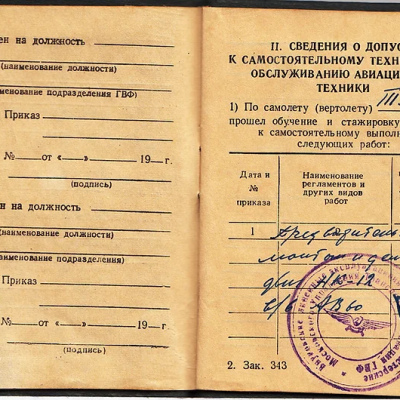 ен на должность
(наименование должности)
именование подразделения ГВФ)
Приказ
№ от «—» 19 г.
(подпись)
ен на должность
(наименование должности)
наименование подразделения)
Приказ
№ от «—» 19 г.
(подпись)
II. СВЕДЕНИЯ О ДОПУС
К САМОСТОЯТЕЛЬНОМУ ТЕХНИ
ОБСЛУЖИВАНИЮ АВИАЦИ
ТЕХНИКИ
1) По самолету (вертолету)
прошел обучение и стажировку
к самостоятельному выполн
следующих работ:
Дата и № приказа
Наименование регламентов и других видов работ
1
монтаж и де
2. Зак. 343